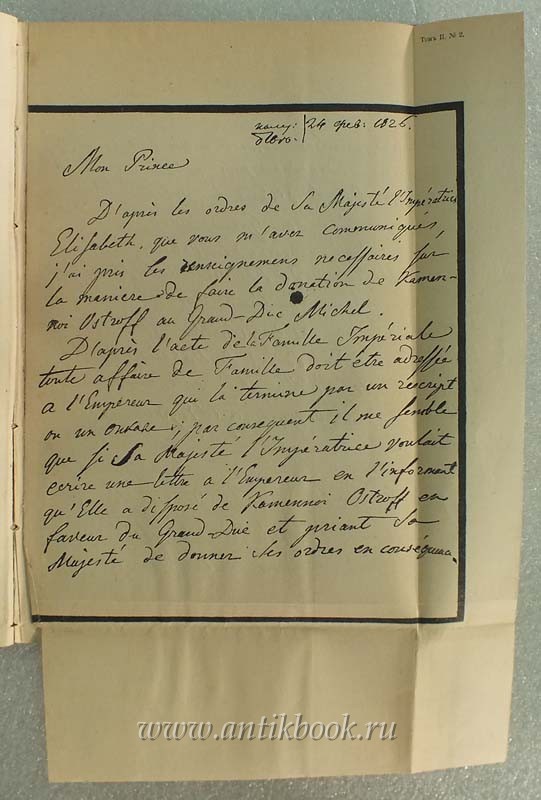 Томъ II. № 2.
24 фев: 1826.
Mon Prince
D'après les ordres de Sa Majesté l'Impératrice
Elisabeth, que vous m'avez communiqués,
j'ai pris les renseignemens necessaires sur
la maniere de faire la donation de Kamen-
noi Ostroff au Grand-Duc Michel.
D'après l'acte de la Famille Impériale
toute affaire de Famille doit être adressée
a l'Empereur qui la termine par un rescript
ou un oukase; par consequent il me semble
que si Sa Majesté l'Impératrice voulait
ecrire une lettre a l'Empereur en l'informant
qu'Elle a disposé de Kamennoi Ostroff en
faveur du Grand-Duc et priant Sa
Majesté de donner ses ordres en conséquence.
www.antikbook.ru